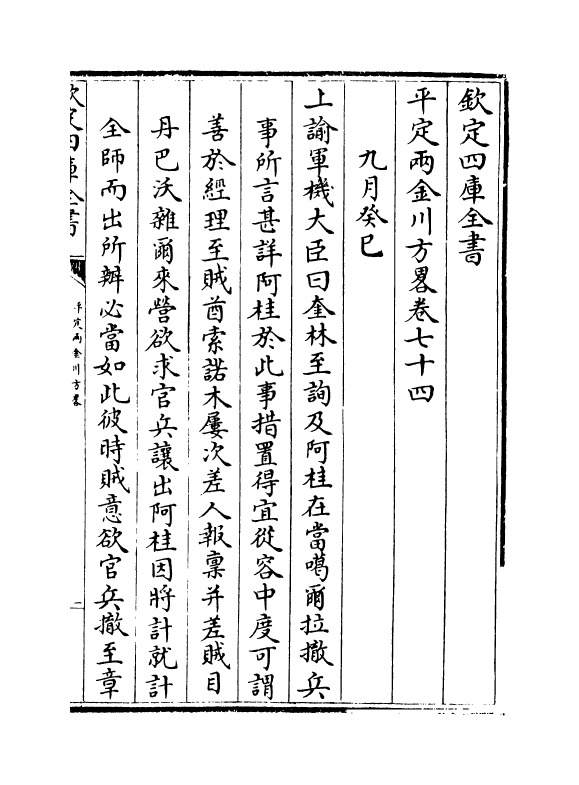 欽定四庫全書
平定兩金川方畧卷七十四
九月癸巳
上諭軍機大臣曰奎林至詢及阿桂在當噶爾拉撤兵
事所言甚詳阿桂於此事措置得宜從容中度可謂
善於經理至賊酋索諾木屢次差人報稟并差賊目
丹巴沃雜爾來營欲求官兵讓出阿桂因將計就計
全師而出所辦必當如此彼時賊意欲官兵撤至章
欽定四庫全書
平定兩金川方畧
一